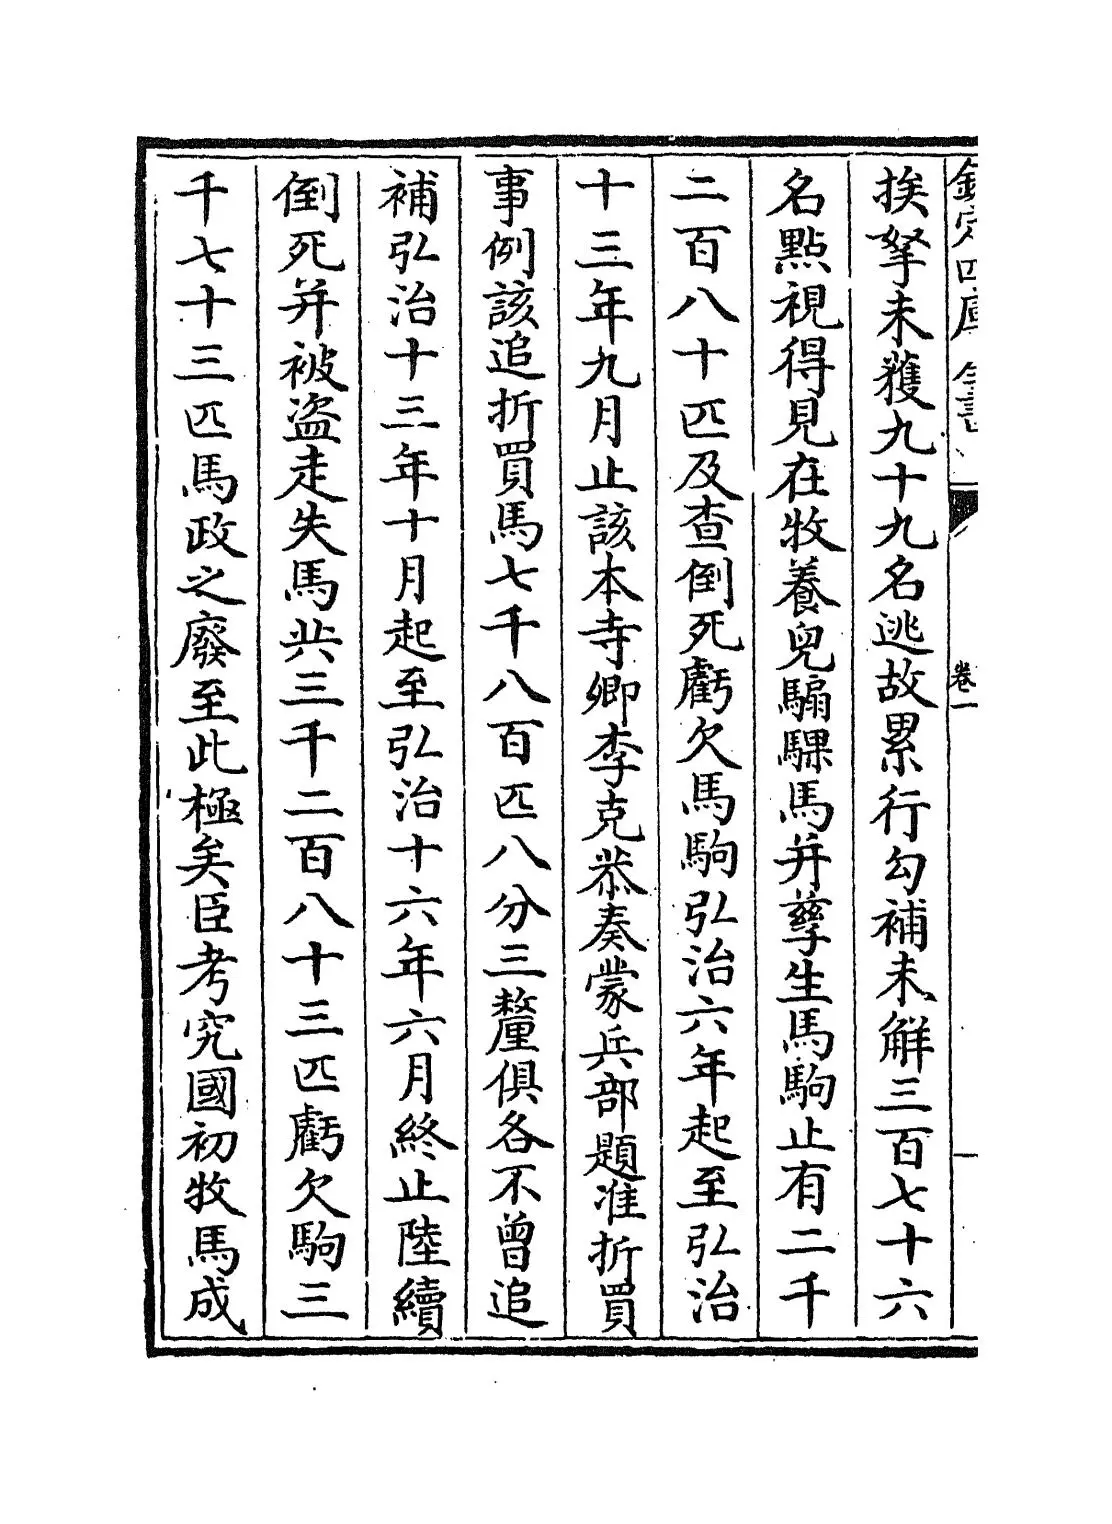 欽定四庫全書
卷一
挨拏未獲九十九名逃故累行勾補未解三百七十六
名點視得見在牧養兒騸騍馬并孳生馬駒止有二千
二百八十匹及查倒死虧欠馬駒弘治六年起至弘治
十三年九月止該本寺卿李克恭奏蒙兵部題准折買
事例該追折買馬七千八百匹八分三釐俱各不曾追
補弘治十三年十月起至弘治十六年六月終止陸續
倒死并被盗走失馬共三千二百八十三匹虧欠駒三
千七十三匹馬政之廢至此極矣臣考究國初牧馬成